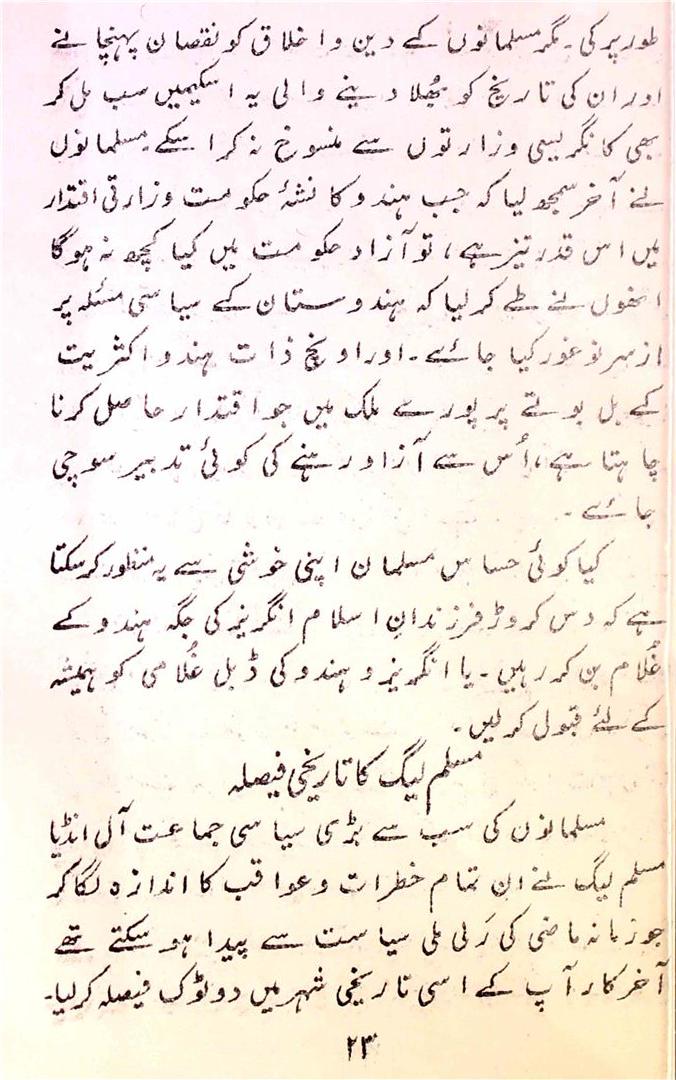 طور پر کی۔ مگر مسلمانوں کے دین و اخلاق کو نقصان پہنچانے
اور ان کی تاریخ کو بُھلا دینے والی یہ اسکیمیں سب مل کر
بھی کانگریسی وزارتوں سے منسوخ نہ کرا سکے۔ مسلمانوں
نے آخر سمجھ لیا کہ جب ہندو کا نشۂ حکومت وزارتی اقتدار
میں اس قدر تیز ہے، تو آزاد حکومت میں کیا کچھ نہ ہوگا
انھوں نے طے کر لیا کہ ہندوستان کے سیاسی مسئلہ پر
از سرِ نو غور کیا جائے۔ اور اونچ ذات ہندو اکثریت
کے بل بوتے پر پورے ملک میں جو اقتدار حاصل کرنا
چاہتا ہے، اُس سے آزاد رہنے کی کوئی تدبیر سوچی
جائے۔
کیا کوئی حساس مسلمان اپنی خوشی سے یہ منظور کر سکتا
ہے کہ دس کروڑ فرزندانِ اسلام انگریز کی جگہ ہندو کے
غُلام بن کر رہیں۔ یا انگریز و ہندو کی ڈبل غُلامی کو ہمیشہ
کے لئے قبول کر لیں۔
مسلم لیگ کا تاریخی فیصلہ
مسلمانوں کی سب سے بڑی سیاسی جماعت آل انڈیا
مسلم لیگ نے ان تمام خطرات و عواقب کا اندازہ لگا کر
جو زمانہ ماضی کی رَلی ملی سیاست سے پیدا ہو سکتے تھے
آخر کار آپ کے اسی تاریخی شہر میں دو ٹوک فیصلہ کر لیا۔
۲۳